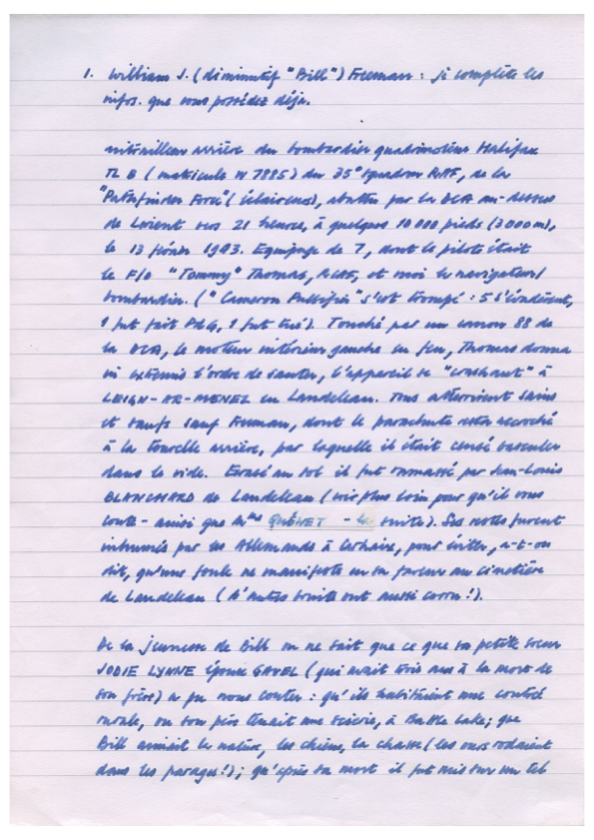 1. William J. (diminutif "Bill") Freeman : je complète les
infos. que vous possédez déja.
mitrailleur arrière du bombardier quadrimoteur Halifax
TL B (matricule W 7885) du 35° squadron RAF, de la
"Pathfinder Force" (éclaireurs), abattu par la DCA au-dessus
de Lorient vers 21 heures, à quelques 10 000 pieds (3000m),
le 13 février 1943. Equipage de 7, dont le pilote était
le F/O "Tommy" Thomas, RCAF, et moi le navigateur/
bombardier. (" Cameron " s'est trompé : 5 s'évadèrent,
1 fut fait PDG, 1 fut tué). Touché par un canon 88 de
la DCA, le moteur intérieur gauche en feu, Thomas donna
in extremis l'ordre de sauter, l'appareil se "crashant" à
LOIGN-AR-MENEZ en Landeleau. Tous atterrirent sains
et saufs sauf Freeman, dont le parachute resta accroché
à la tourelle arrière, par laquelle il était censé basculer
dans le vide. Ecrasé au sol il fut ramassé par Jean-Louis
BLANCHARD de Landeleau (voir plus loin pour qu'il vous
conte - ainsi que Mme QUÉNET - la suite). Ses restes furent
inhumés par les Allemands à Carhaix, pour éviter, a-t-on
dit, qu'une foule ne manifeste en sa faveur au cimetière
de Landeleau (d'autres bruits ont aussi couru !).
De la jeunesse de Bill on ne sait que ce que sa petite soeur
JODIE LYNNE épouse GAVEL (qui avait trois ans à la mort de
son frère) a pu nous conter : qu'ils habitaient une contrée
rurale, où son père tenait une scierie, à Battle Lake; que
Bill aimait la nature, les chiens, la chasse (les ours rodaient
dans les parages !); qu'après sa mort il fut mis sur un tel